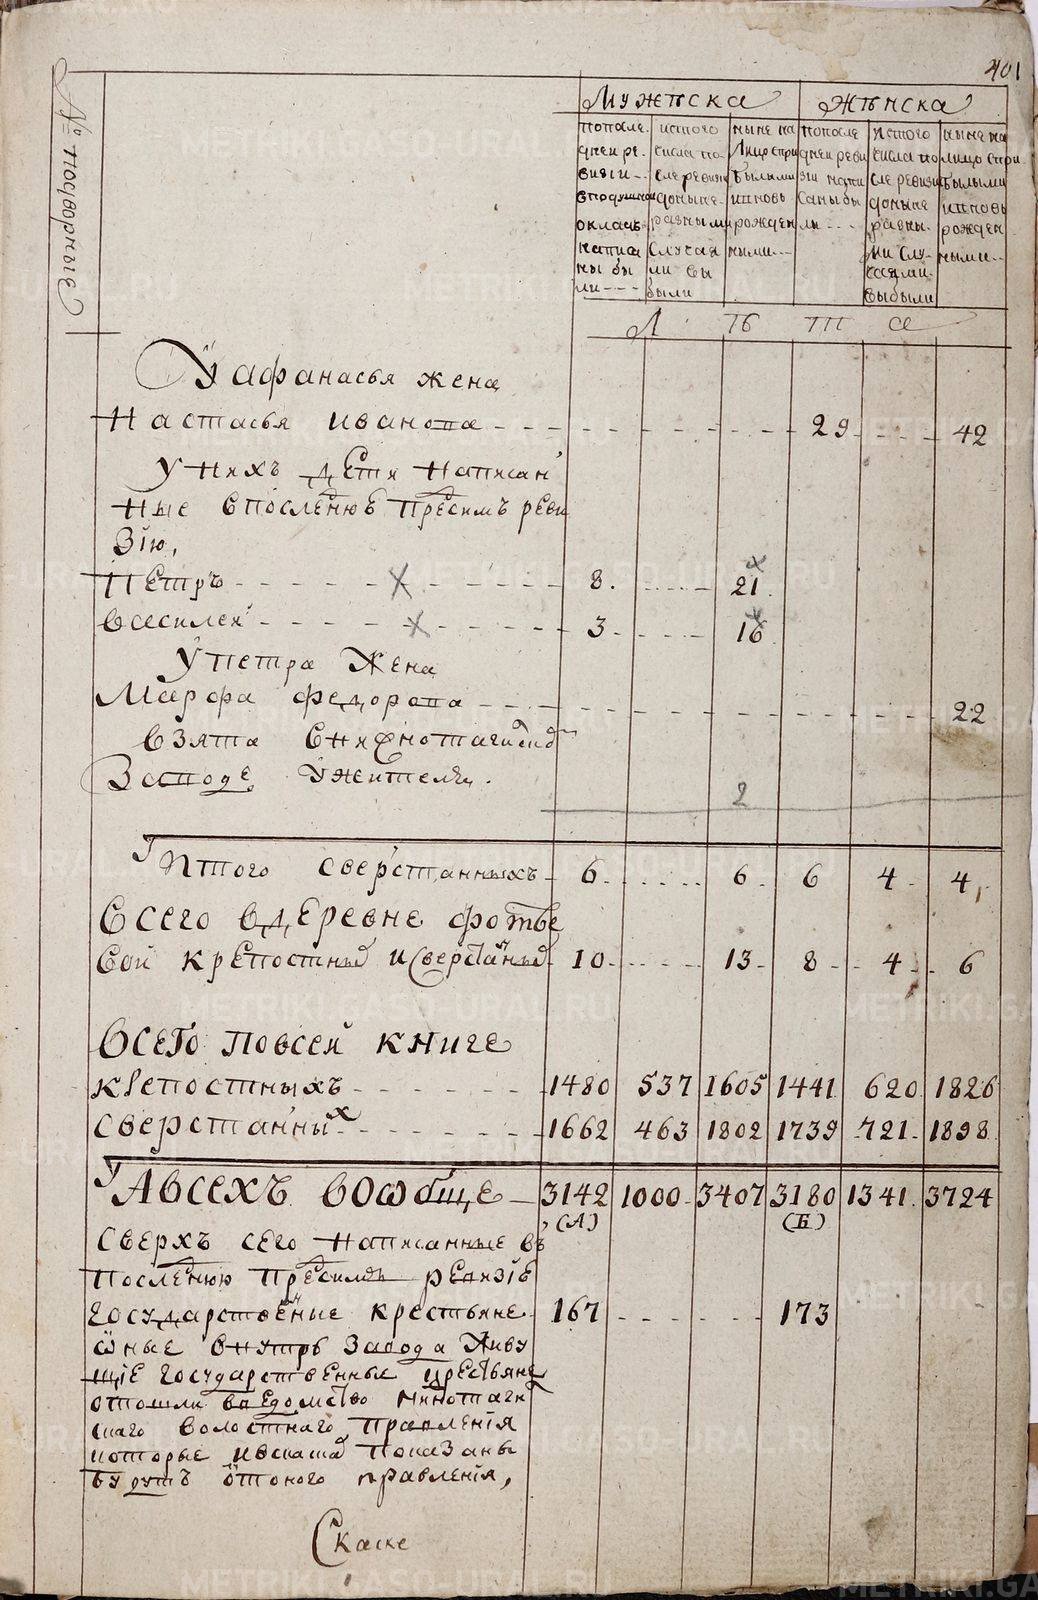 401
№ подворные
Мужеска Женска
попосле
дней ре
визги
вподушной
окладъ
написа
ны бы
ли
истого
числа по
сле ревизи
доныне
разными
случая
ми вы
были
ныне на
лицо спри
былыми
ивновь
рожден
ными
попосле
дней реви
зи напи
саны бы
ли
истого
числа по
сле ревизи
доныне
разны
ми слу
чаями
выбыли
ныне на
лицо спри
былыми
ивновь
рожден
ными
Л Т
У афанасья жена
Настасья иванова 29 42
У нихъ дети написан
ные впоследнюю пресимъ реви
зiю,
Петръ 8. 21
василей 3 16
У петра жена
Марфа федорова 22
взята снижнотагилскаго
Заводе ужителя.
2
Итого сверстанныхъ 6 6 6 4 4,
Всего вдеревне фотье
вой крепостныхъ исверстанныхъ 10 13 8 4 6
Всего повсей книге
крепостныхъ 1480 537 1605 1441 620 1826
сверстанныхъ 1662 463 1802 1739 721 1898
Авсехъ вообще 3142 1000 3407 3180 1341 3724
(А) (Б)
Сверхъ сего написанные въ
последнюю пресимъ ревизiе
государственные крестьяне 167 173
оные внутрь завода живу
щiе государственные крестьяне
отошли введомство нижнотаги
скаго волостнаго правленiя
которые ивсказка показаны
будутъ отоного правленiя,
Скаске
METRIKI.GASO-URAL.RU